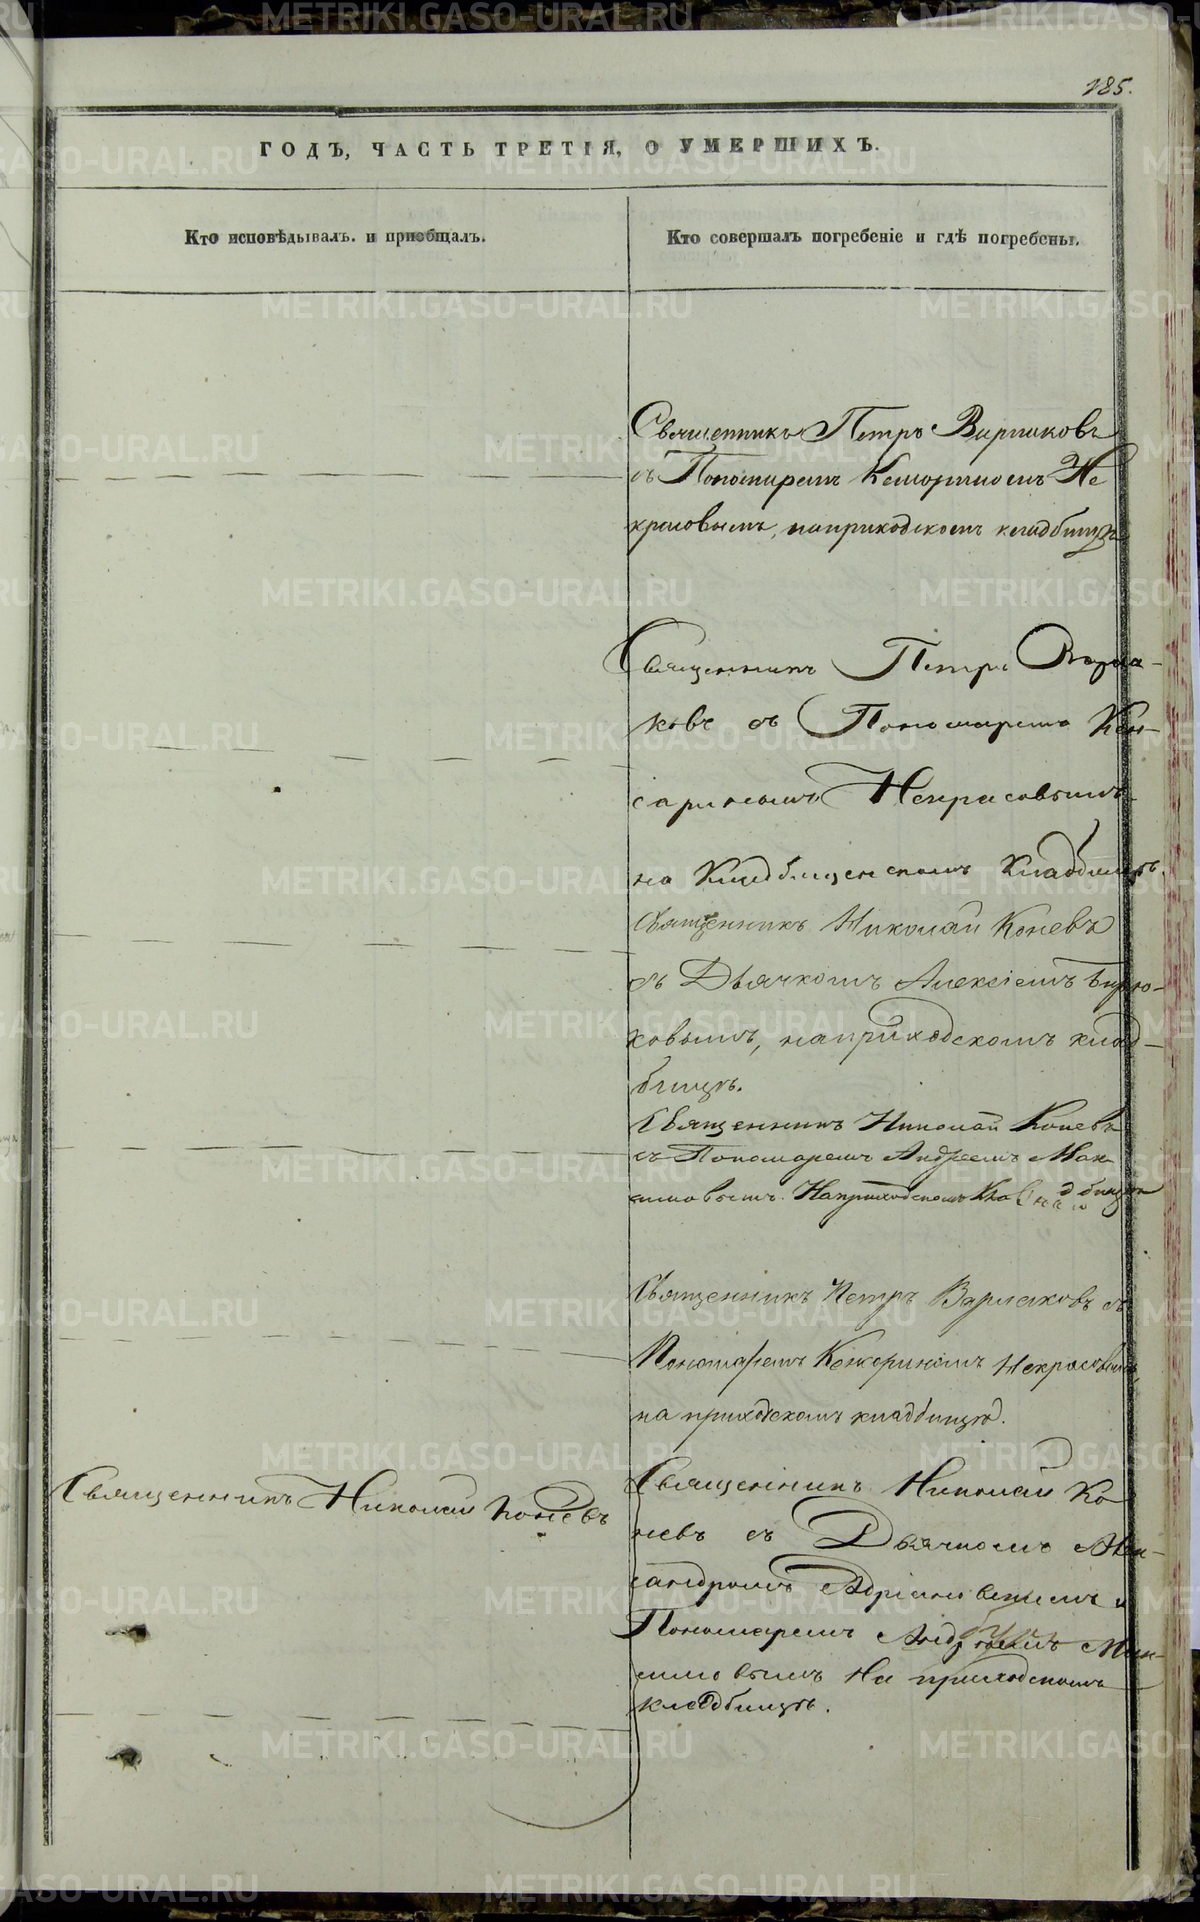 185.
ГОДЪ, ЧАСТЬ ТРЕТІЯ, О УМЕРШИХЪ.
Кто исповѣдывалъ. и приобщалъ.
Кто совершалъ погребеніе и гдѣ погребены.
Священникъ Петръ Варлаковъ
съ Пономаремъ Не
красовымъ, на приходскомъ кладбищѣ
Священникъ Петръ Варла-
ковъ съ Пономаремъ Кен-
сариномъ Некрасовымъ
на Кладбищенскомъ Кладбищѣ.
Священникъ Николай Коневъ
съ Дьячкомъ Алексіемъ Бирю-
ковымъ, на приходскомъ клад-
бищѣ.
Священникъ Николай Коневъ
съ Пономаремъ Андреемъ Мак
симовымъ На приходскомъ
Священникъ Петръ Варлаковъ съ
Пономаремъ Некрасовымъ,
на приходскомъ кладбищѣ.
Священникъ Николай Коневъ
Священникъ Николай Ко
невъ съ Дьячкомъ Алек-
сандромъ Адріановскимъ и
Пономаремъ Андреемъ Мак-
симовымъ На приходскомъ
кладбищѣ.
METRIKI.GASO-URAL.RU